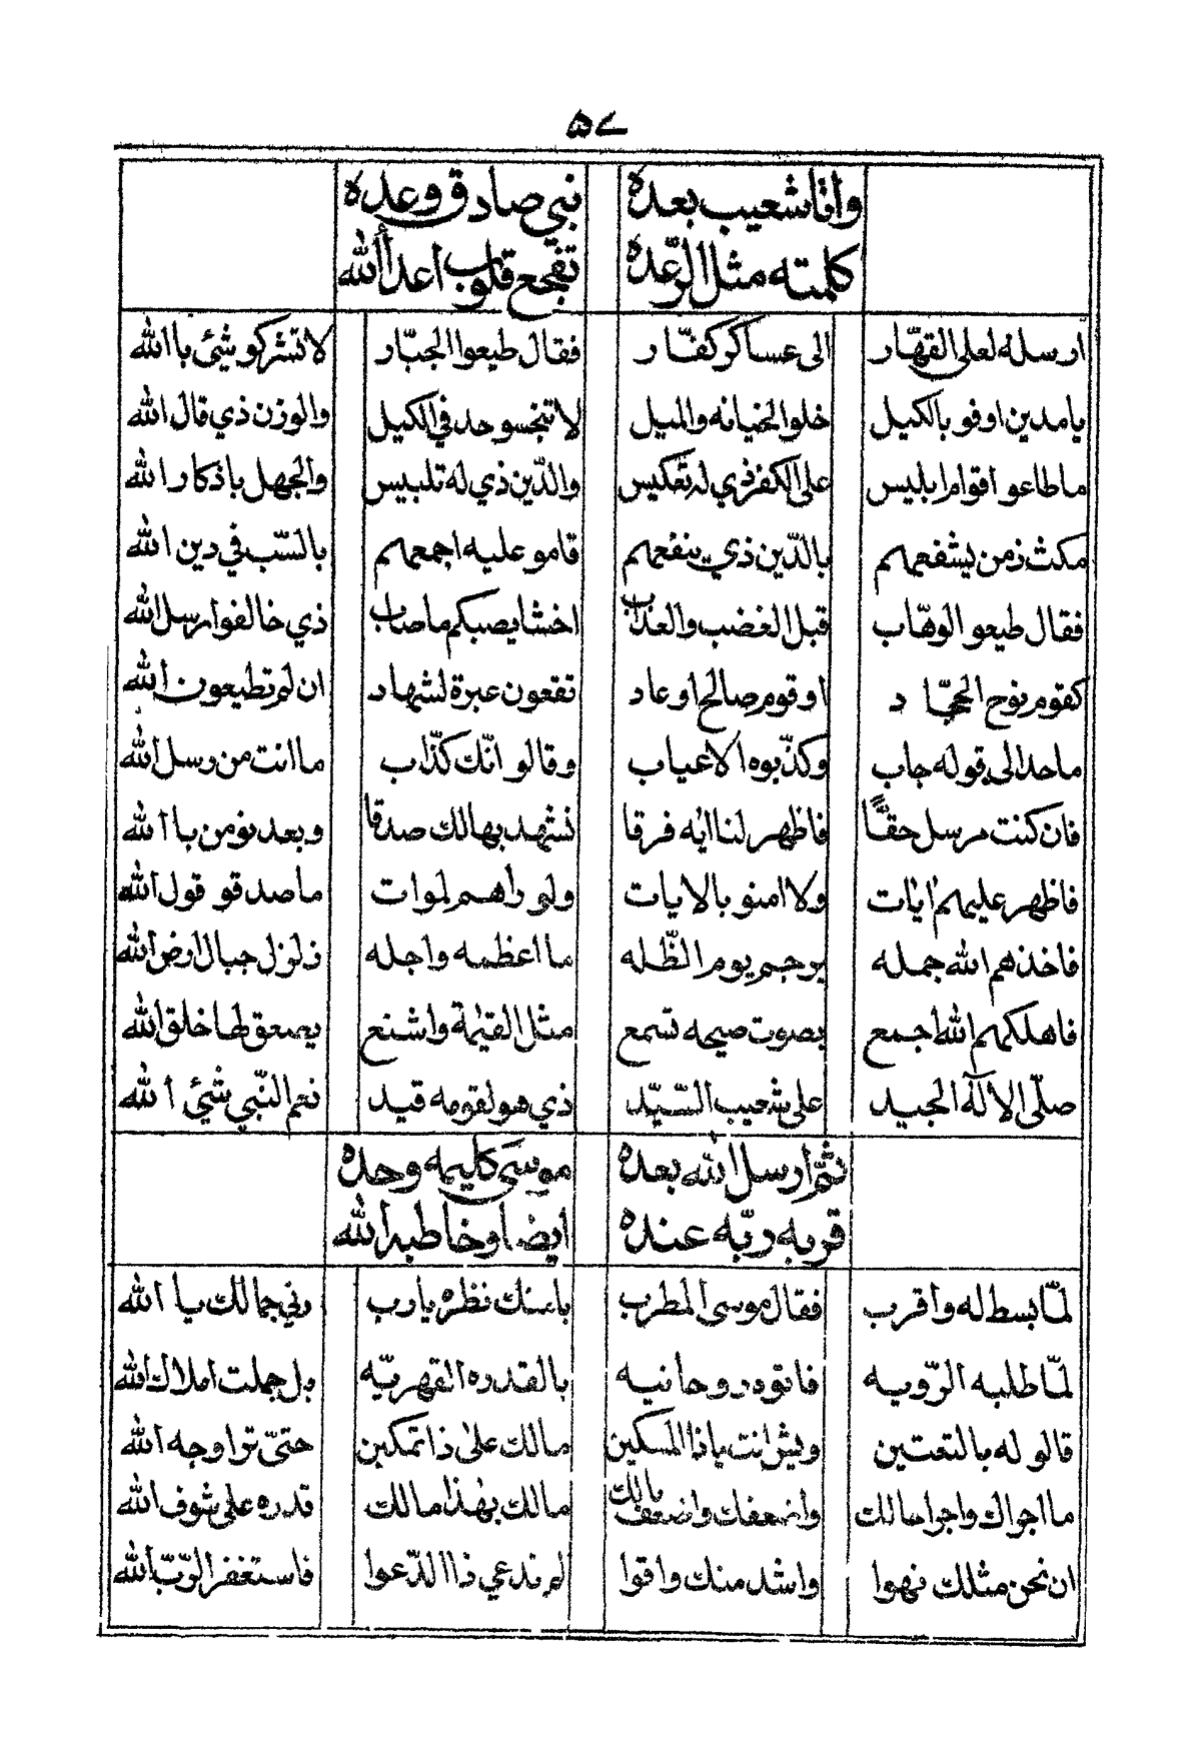 ٥٧
واتا شعيب بعده نبي صادق وعده
كلمته مثل الرّعده تفجع قلوب اعدا ألله
ارسله لعلى القهّار الى عساكر كفّار فقال طيعوا الجبّار لا تشركو شيئ باالله
يامدين اوفو بالكيل خلوا الخيانه والميل لا تبخسو حد في الكيل والوزن ذي قال الله
ماطاعو اقوام ابليس على الكفر ذي له تعكيس والدّين ذي له تلبيس والجهل باذكار الله
مكث زمن يشفعهم بالدّين ذي ينفعهم قامو عليه اجمعهم بالسّب في دين الله
فقال طيعو الوهّاب قبل الغضب والعذاب اخشا يصبكم ماصاب ذي خالفوا رسل الله
كقوم نوح الجحّاد او قوم صالح او عاد تقعون عبرة لشهاد ان لم تطيعون الله
ماحد الى قوله جاب وكذّبوه الاعياب وقالو انّك كذّاب ماانت من رسل الله
فان كنت مرسل حقّاً فاظهر لنا ايه فرقا نشهد بهالك صدقا وبعد نومن با الله
فاظهر عليهم ايات ولا امنو بالايات ولو راهم لموات ماصدقو قول الله
فاخذهم الله جمله برجم يوم الظّله ما اعظمه واجله زلزل جبال ارض الله
فاهلكهم الله اجمع بصوت صيحه تسمع مثل القيمة واشنع يصعق لها خلق الله
صلّى الا لآه الجيد على شعيب السّيّد ذي هو لقومه قيد نعم النّبي شيئ ألله
ثمّ ارسل الله بعده موسى كليمه وحده
قربه ربّه عنده ايضا وخاطبه الله
لمّا بسط له واقرب فقال موسى المطرب باسنك نظره يارب رني جمالك يا الله
لمّا طلبه الرّويه فاتوه روحانيه بالقدره القهريّه بل جملت املاك الله
قالو له بالتعتين ويش انت ياذا المسكين مالك على ذا تمكين حتىّ ترا وجه الله
ما اجراك واجرا حالك واضعفك واضعف بالك مالك بهذا مالك قدره على شوف الله
ان نحن مثلك نهوا واشد منك واقوا لم ندعي ذا الدّعوا فاستغفر الرّبّ الله